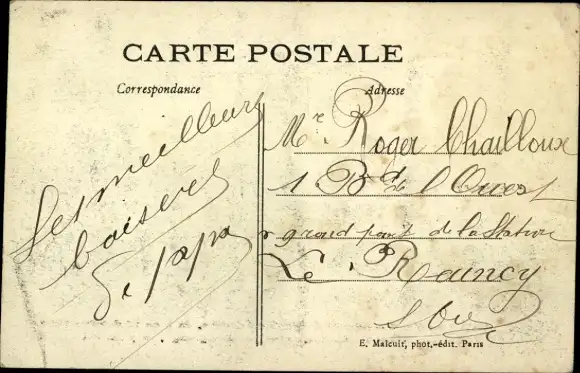 CARTE POSTALE
Correspondance
Adresse
Les meilleurs
baisers
de papa
Mr Roger Chailloux
1 Bd de l'Ouest
grand pont de la Station
Le Raincy
S Oise
E. Malcuit, phot.-édit. Paris